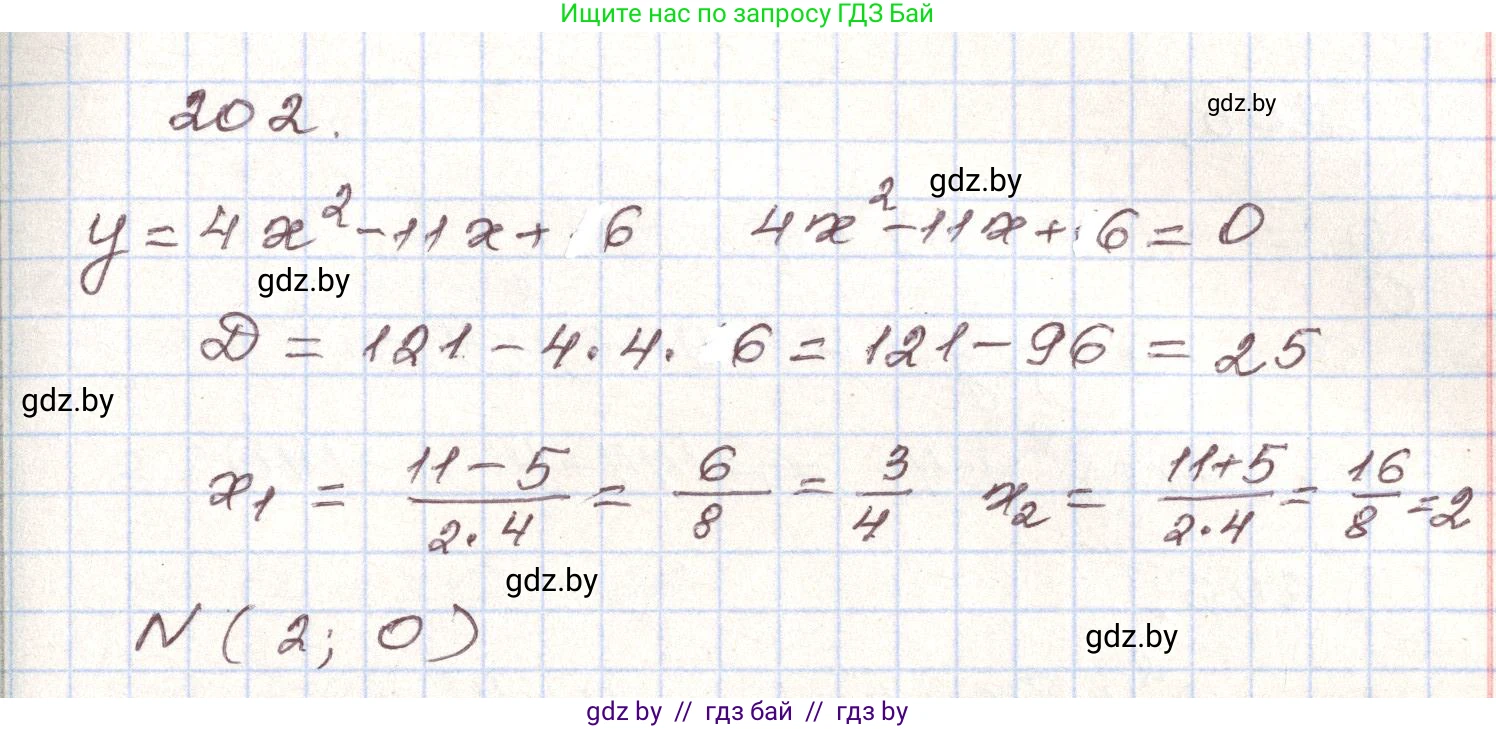 Ищите нас по запросу ГДЗ Бай
202.
gdz.by
y = 4x² - 11x + 6 4x² - 11x + 6 = 0
gdz.by
gdz.by
D = 121 - 4 · 4 · 6 = 121 - 96 = 25
gdz.by
x₁ = (11 - 5)/(2 · 4) = 6/8 = 3/4 x₂ = (11+5)/(2 · 4) = 16/8 = 2
gdz.by
N (2; 0)
gdz.by
gdz by // гдз бай // гдз by